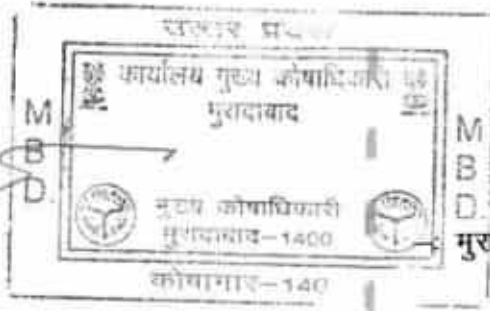 उत्तर प्रदेश
कार्यालय मुख्य कोषाधिकारी
मुरादाबाद
M
B
D.
M
B
D.
मुख्य कोषाधिकारी
मुरादाबाद-1400
मुर
कोषागार-140